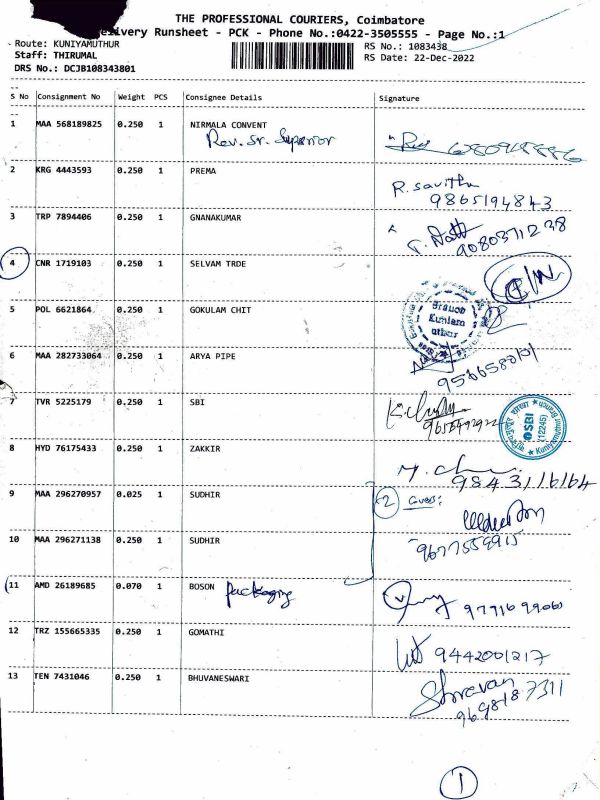 THE PROFESSIONAL COURIERS, Coimbatore
elivery Runsheet - PCK - Phone No.:0422-3505555 - Page No.:1
Route: KUNIYAMUTHUR RS No.: 1083438
Staff: THIRUMAL RS Date: 22-Dec-2022
DRS No.: DCJB108343801
S No Consignment No Weight PCS Consignee Details Signature
1 MAA 568189825 0.250 1 NIRMALA CONVENT
Rev. Sr. Superior
2 KRG 4443593 0.250 1 PREMA
R. Savitha
9865194843
3 TRP 7894406 0.250 1 GNANAKUMAR
9080371238
4 CNR 1719103 0.250 1 SELVAM TRDE
5 POL 6621864 0.250 1 GOKULAM CHIT
Branch
Kuniam
uthur
6 MAA 282733064 0.250 1 ARYA PIPE
7 TVR 5225179 0.250 1 SBI
SBI
(12245)
Kuniyamuthur
8 HYD 76175433 0.250 1 ZAKKIR
9843116164
9 MAA 296270957 0.025 1 SUDHIR
2
10 MAA 296271138 0.250 1 SUDHIR
9677559915
11 AMD 26189685 0.070 1 BOSON Packaging
12 TRZ 155665335 0.250 1 GOMATHI
9442001217
13 TEN 7431046 0.250 1 BHUVANESWARI
Shravan
9698187311
1